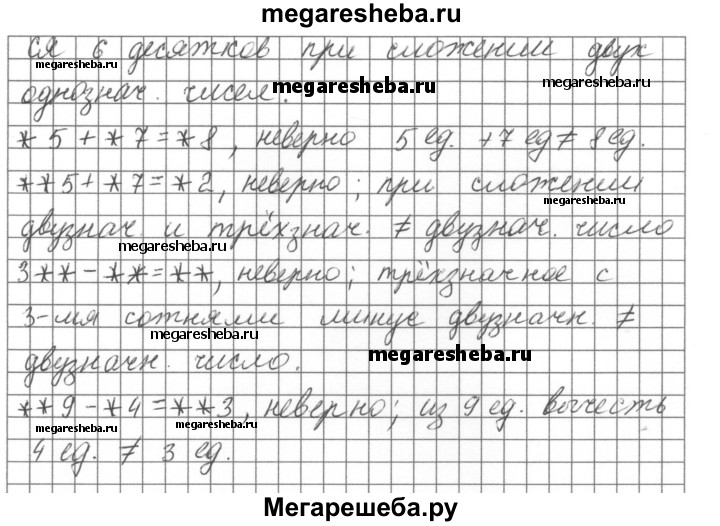 megaresheba.ru
ся 6 десятков при сложении двух
megaresheba.ru megaresheba.ru megaresheba.ru
однознач. чисел.
*5+*7=*8, неверно 5 ед. +7 ед ≠ 8 ед.
**5+*7=*2, неверно; при сложении
megaresheba.ru
двузнач. и трёхзнач. ≠ двузнач. число
megaresheba.ru
3**-**=**, неверно; трёхзначное с
3-мя сотнями минус двузначн ≠
megaresheba.ru megaresheba.ru
двузначн. число.
**9-*4=**3, неверно; из 9 ед. вычесть
megaresheba.ru megaresheba.ru
4 ед. ≠ 3 ед.
Мегарешеба.ру